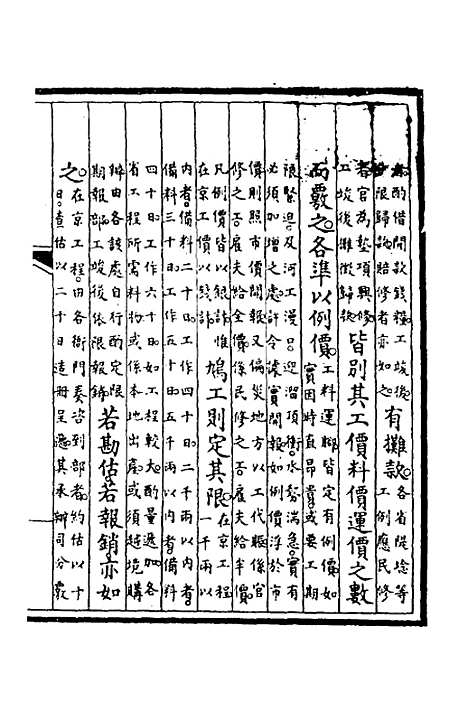 亦酌借閒款錢糧工竣後
分限歸款賠修者亦如之
有攤款
各省隄埝等
工例應民修
者官為墊項興修
工竣後攤徵歸款
皆別其工價料價運價之數
而覈之各準以例價
工料運腳皆定有例價如
實因時直昂貴或要工期
限緊迫及河工漫口迎溜頂衝水勢湍急實有
必須加增之處許令據實開報如例價浮於市
價則照市價開報又偏災地方以工代賑係官
修之工雇夫給全價係民修之工雇夫給半價
凡例價皆以銀計惟
在京工價以錢計
鳩工則定其限
在京工程
一千兩以
內者備料二十日工作四十日二千兩以內者
備料三十日工作五十日五千兩以內者備料
四十日工作六十日如工程較大酌量遞加各
省工程所需料物或係本地出產或須越境購
辦由各該處自行酌定限
期報部工竣後依限報銷
若勘估若報銷亦如
之
在京工程由各衙門奏咨到部者約估以十
日查估以二十日造冊呈遞其承辦司分覈